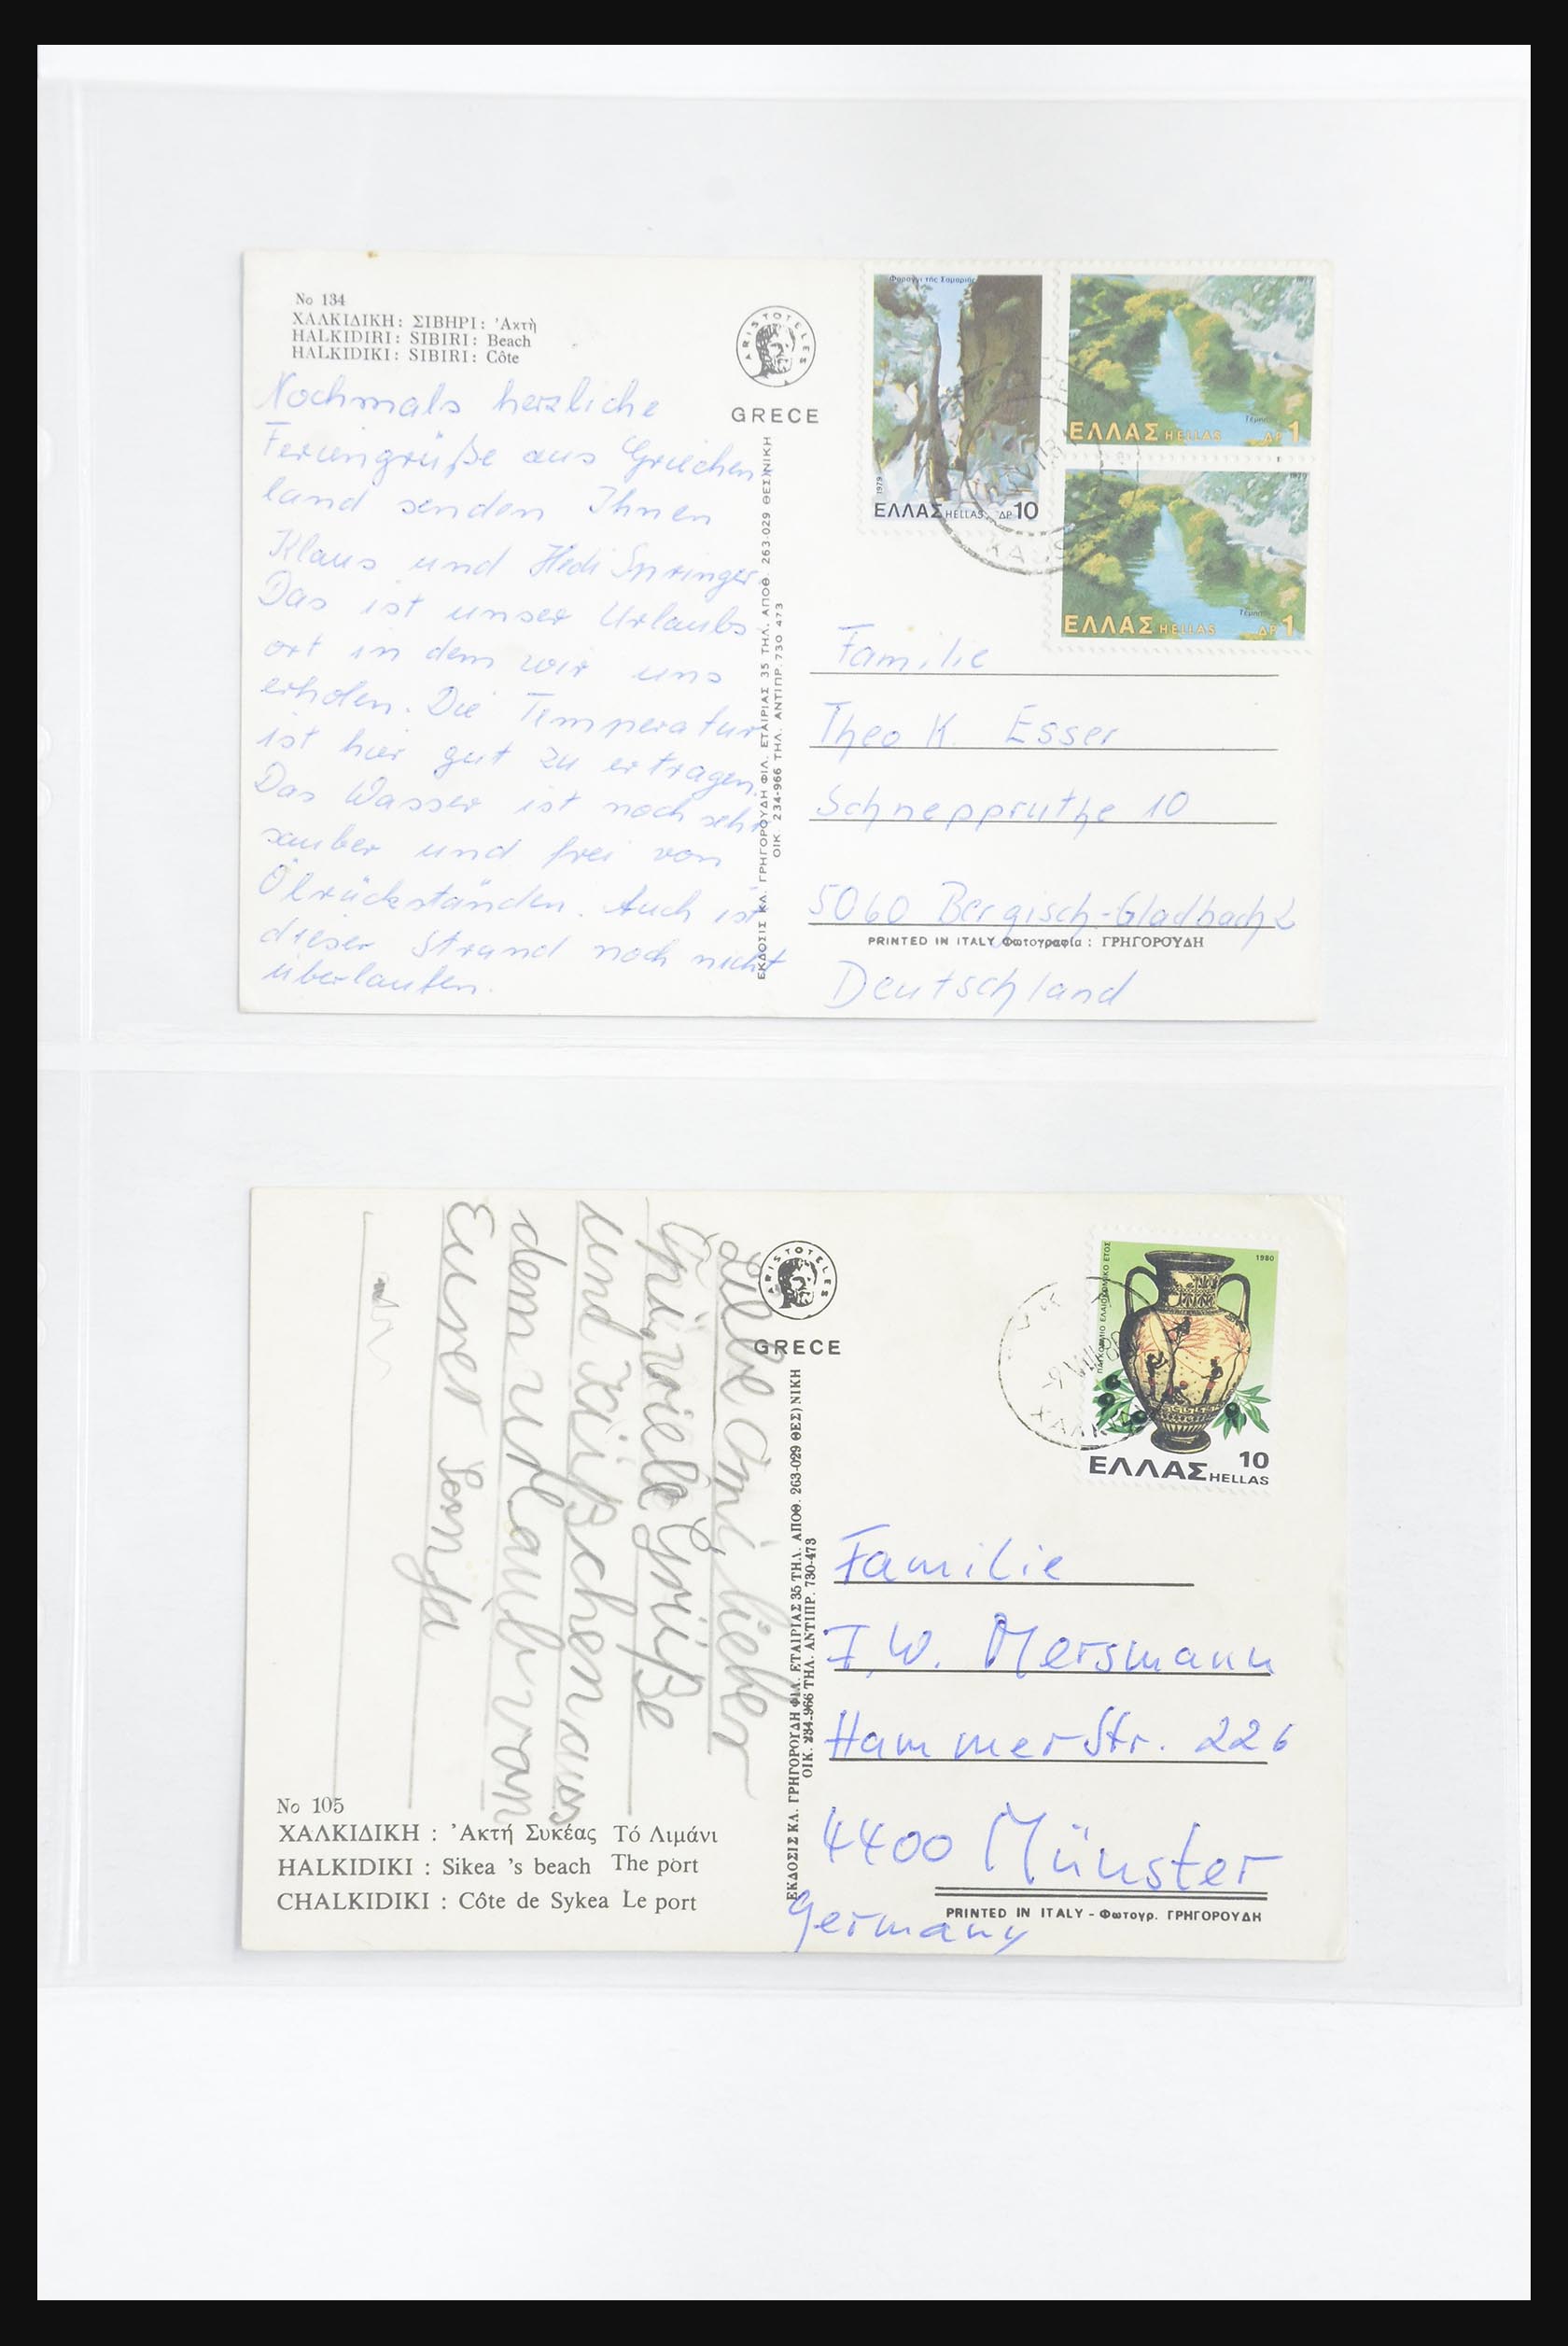 No 134
ΧΑΛΚΙΔΙΚΗ: ΣΙΒΗΡΙ: Ἀκτὴ
HALKIDIRI: SIBIRI: Beach
HALKIDIKI: SIBIRI: Côte
ARISTOTELES
GRECE
Nochmals herzliche
Feriengrüße aus Griechen
land senden Ihnen
Klaus und Hedi Springer
Das ist unser Urlaubs
ort in dem wir uns
erholen. Die Temperatur
ist hier gut zu ertragen.
Das Wasser ist noch sehr
sauber und frei von
Ölrückständen. Auch ist
dieser Strand noch nicht
überlaufen.
ΕΚΔΟΣΙΣ ΚΛ. ΓΡΗΓΟΡΟΥΔΗ ΦΙΛ. ΕΤΑΙΡΙΑΣ 35 ΤΗΛ. ΑΠΟΘ. 263-029 ΘΕΣ)ΝΙΚΗ
ΟΙΚ. 234-966 ΤΗΛ. ΑΝΤΙΠΡ. 730 473
Φαράγγι τῆς Σαμαριᾶς
1979
ΕΛΛΑΣ HELLAS ΔΡ 10
1979
Τέμπη
ΕΛΛΑΣ HELLAS ΔΡ 1
1979
Τέμπη
ΕΛΛΑΣ HELLAS ΔΡ 1
Familie
Theo K. Esser
Schneppruthe 10
5060 Bergisch-Gladbach 2
PRINTED IN ITALY Φωτογραφία : ΓΡΗΓΟΡΟΥΔΗ
Deutschland
Liebe Omi, lieber
viele Grüße
und Küßchen aus
dem Urlaub von
Eurer Sonja
No 105
ΧΑΛΚΙΔΙΚΗ : Ἀκτή Συκέας Τό Λιμάνι
HALKIDIKI : Sikea 's beach The port
CHALKIDIKI : Côte de Sykea Le port
ARISTOTELES
GRECE
ΕΚΔΟΣΙΣ ΚΛ. ΓΡΗΓΟΡΟΥΔΗ ΦΙΛ. ΕΤΑΙΡΙΑΣ 35 ΤΗΛ. ΑΠΟΘ. 263-029 ΘΕΣ)ΝΙΚΗ
ΟΙΚ. 234-966 ΤΗΛ. ΑΝΤΙΠΡ. 730-473
ΠΑΓΚΟΣΜΙΟ ΕΛΑΙΟΚΟΜΙΚΟ ΕΤΟΣ
1980
10
ΕΛΛΑΣ HELLAS
Familie
F.W. Mersmann
Hammer Str. 226
4400 Münster
PRINTED IN ITALY - Φωτογρ. ΓΡΗΓΟΡΟΥΔΗ
Germany